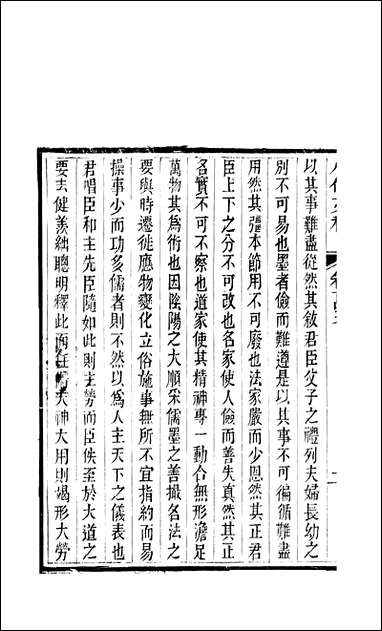 以其事難盡從然其敘君臣父子之禮列夫婦長幼之
別不可易也墨者儉而難遵是以其事不可徧循難盡
用然其彊本節用不可廢也法家嚴而少恩然其正君
臣上下之分不可改也名家使人儉而善失真然其正
名實不可不察也道家使其精神專一動合無形澹足
萬物其爲術也因陰陽之大順采儒墨之善撮名法之
要與時遷徙應物變化立俗施事無所不宜指約而易
操事少而功多儒者則不然以爲人主天下之儀表也
君唱臣和主先臣隨如此則主勞而臣佚至於大道之
要去健羨絀聰明釋此而任術夫神大用則竭形大勞